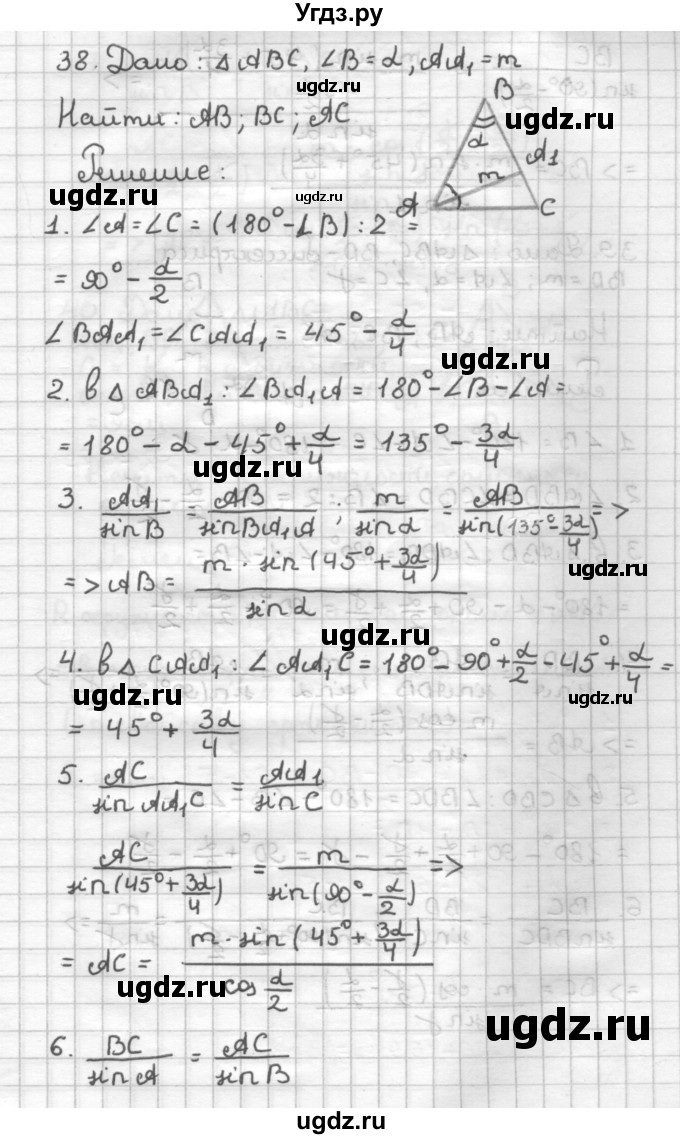 Угдз.ру
38. Дано: △ ABC, ∠B = α, AA₁ = m
Найти: AB; BC; AC
Решение:
B
α
A1
m
A
C
ugdz.ru
ugdz.ru
ugdz.ru
1. ∠A = ∠C = (180° - ∠B) : 2 =
= 90° - α/2
ugdz.ru
∠BAA₁ = ∠CAA₁ = 45° - α/4
ugdz.ru
2. в △ ABA₁ : ∠BA₁A = 180° - ∠B - ∠A =
= 180° - α - 45° + α/4 = 135° - 3α/4
ugdz.ru
3. AA₁/sinB = AB/sinBA₁A ; m/sinα = AB/sin(135° - 3α/4) =>
ugdz.ru
=> AB = m · sin(45° + 3α/4)/sinα
ugdz.ru
4. в △ CAA₁ : ∠AA₁C = 180° - 90° + α/2 - 45° + α/4 =
ugdz.ru
= 45° + 3α/4
ugdz.ru
5. AC/sin AA₁C = AA₁/sin C
AC/sin(45° + 3α/4) = m/sin(90° - α/2) =>
ugdz.ru
= AC = m · sin(45° + 3α/4)/cos α/2
ugdz.ru
ugdz.ru
6. BC/sin A = AC/sin B
ugdz.ru
ugdz.ru